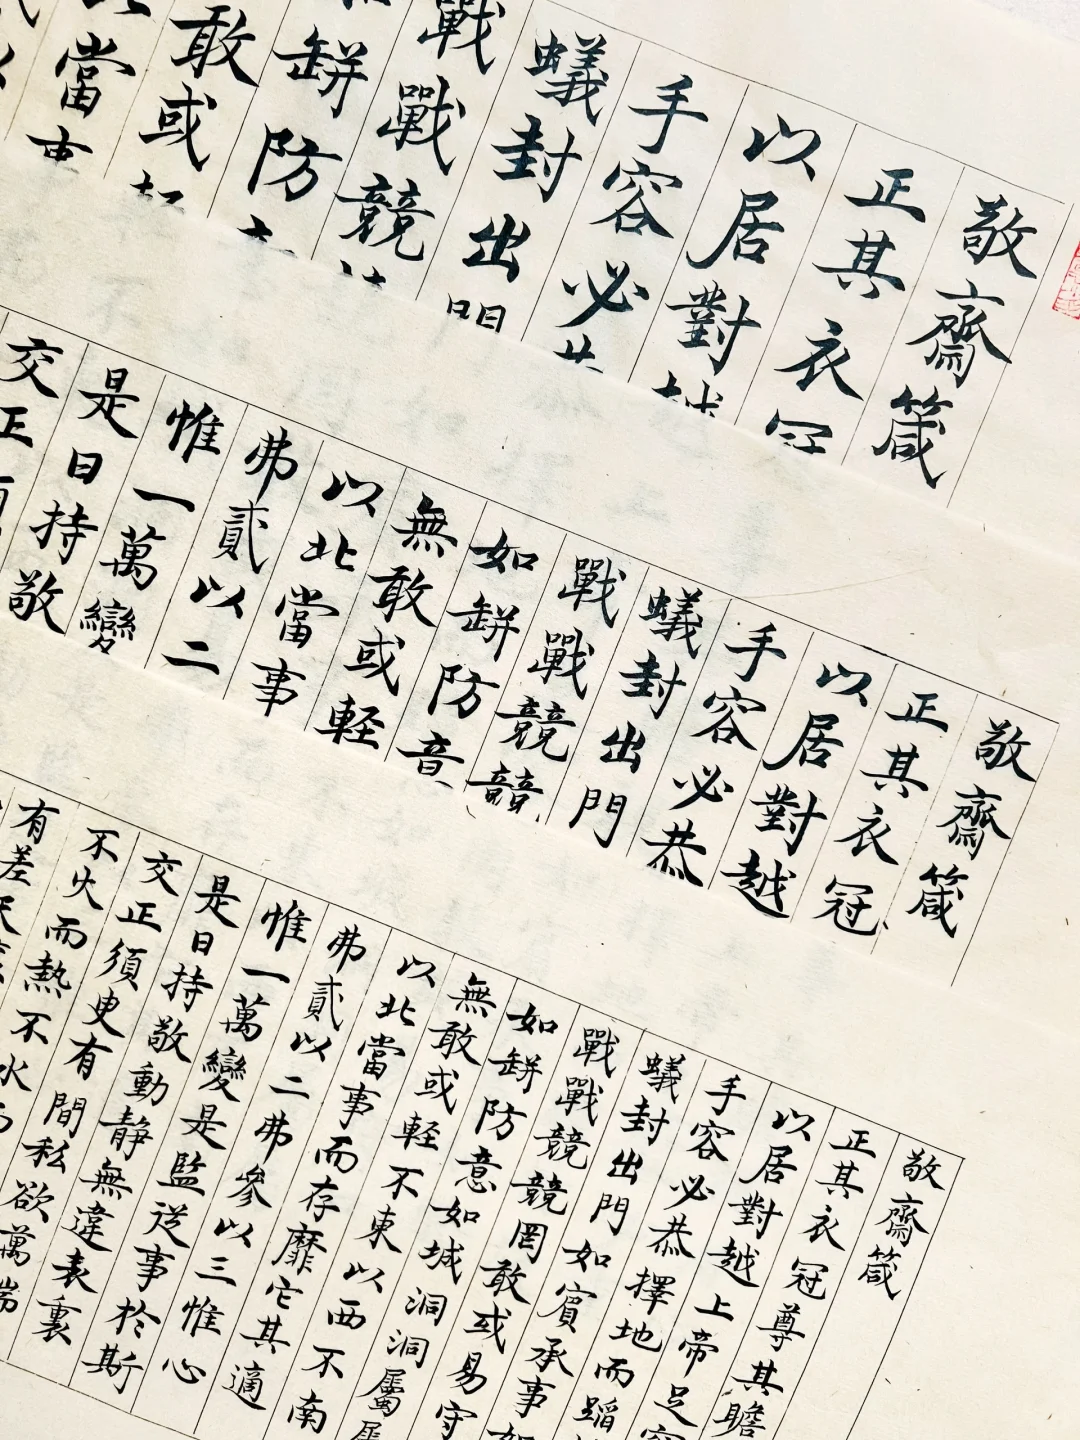 敬齋箴
正其衣冠
以居對越
手容必恭
蟻封出
戰戰競
缾防
敢或
當
敬齋箴
正其衣冠
以居對越
手容必恭
蟻封出門
戰戰競競
如缾防意
無敢或軽
以北當事
弗貳以二
惟一萬變
是日持敬
交正
敬齋箴
正其衣冠尊其瞻
以居對越上帝足容
手容必恭擇地而蹈
蟻封出門如賓承事如
戰戰競競罔敢或易守
如缾防意如城洞洞屬
無敢或軽不東以西不南
以北當事而存靡它其適
弗貳以二弗參以三惟心
惟一萬變是監從事於斯
是日持敬動靜無違表裏
交正須臾有間私欲萬端
不火而熱不氷
有差天